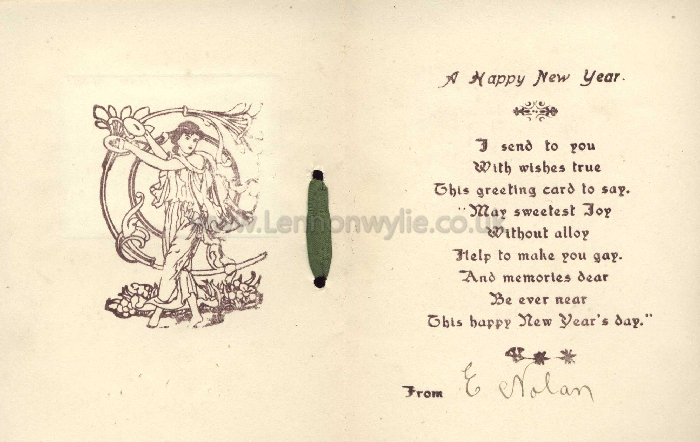 A Happy New Year.
I send to you
With wishes true
This greeting card to say.
"May sweetest Joy
Without alloy
Help to make you gay.
And memories dear
Be ever near
This happy New Year's day."
From E Nolan
www.Lennonwylie.co.uk